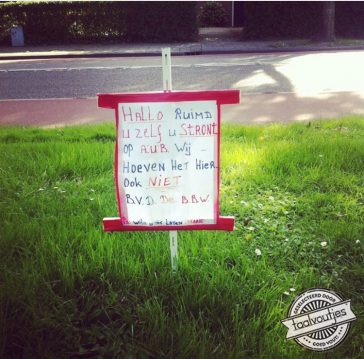 HALLO RUIMD
U ZELF U STRONT
OP A.U.B. WIJ -
HOEVEN HET HIER
OOK NIET
B.V.D. DE B.B.W.
GESELECTEERD DOOR
taalvoutjes
GOED VOUT!